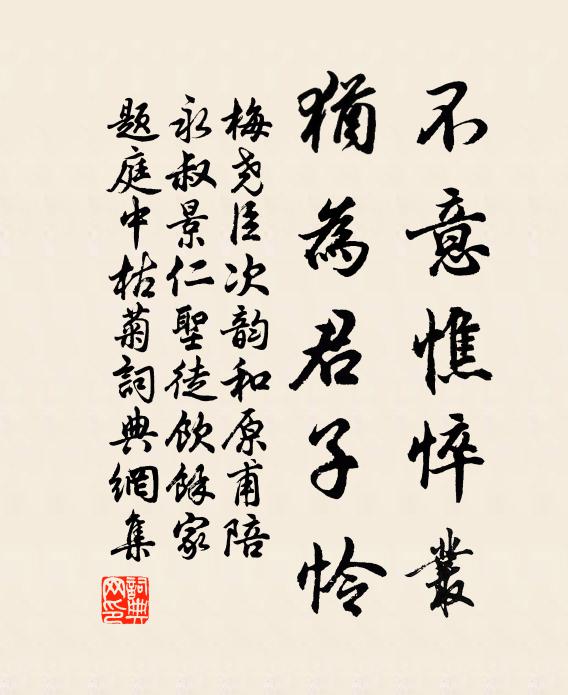 不意憔悴叢
猶為君子怜
梅尧臣次韵和原甫陪
永叔景仁聖徒飲餘家
题庭中枯菊詞典網集
詞典网印